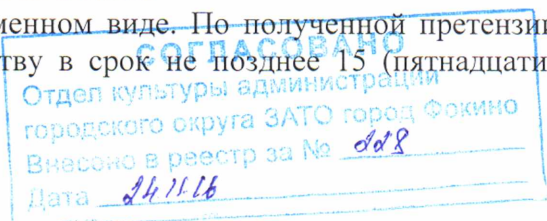 менном виде. По полученной претензии
СОГЛАСОВАНО
тву в срок не позднее 15 (пятнадцати
Отдел культуры администрации
городского округа ЗАТО город Фокино
Внесено в реестр за № 228
Дата 24.11.16